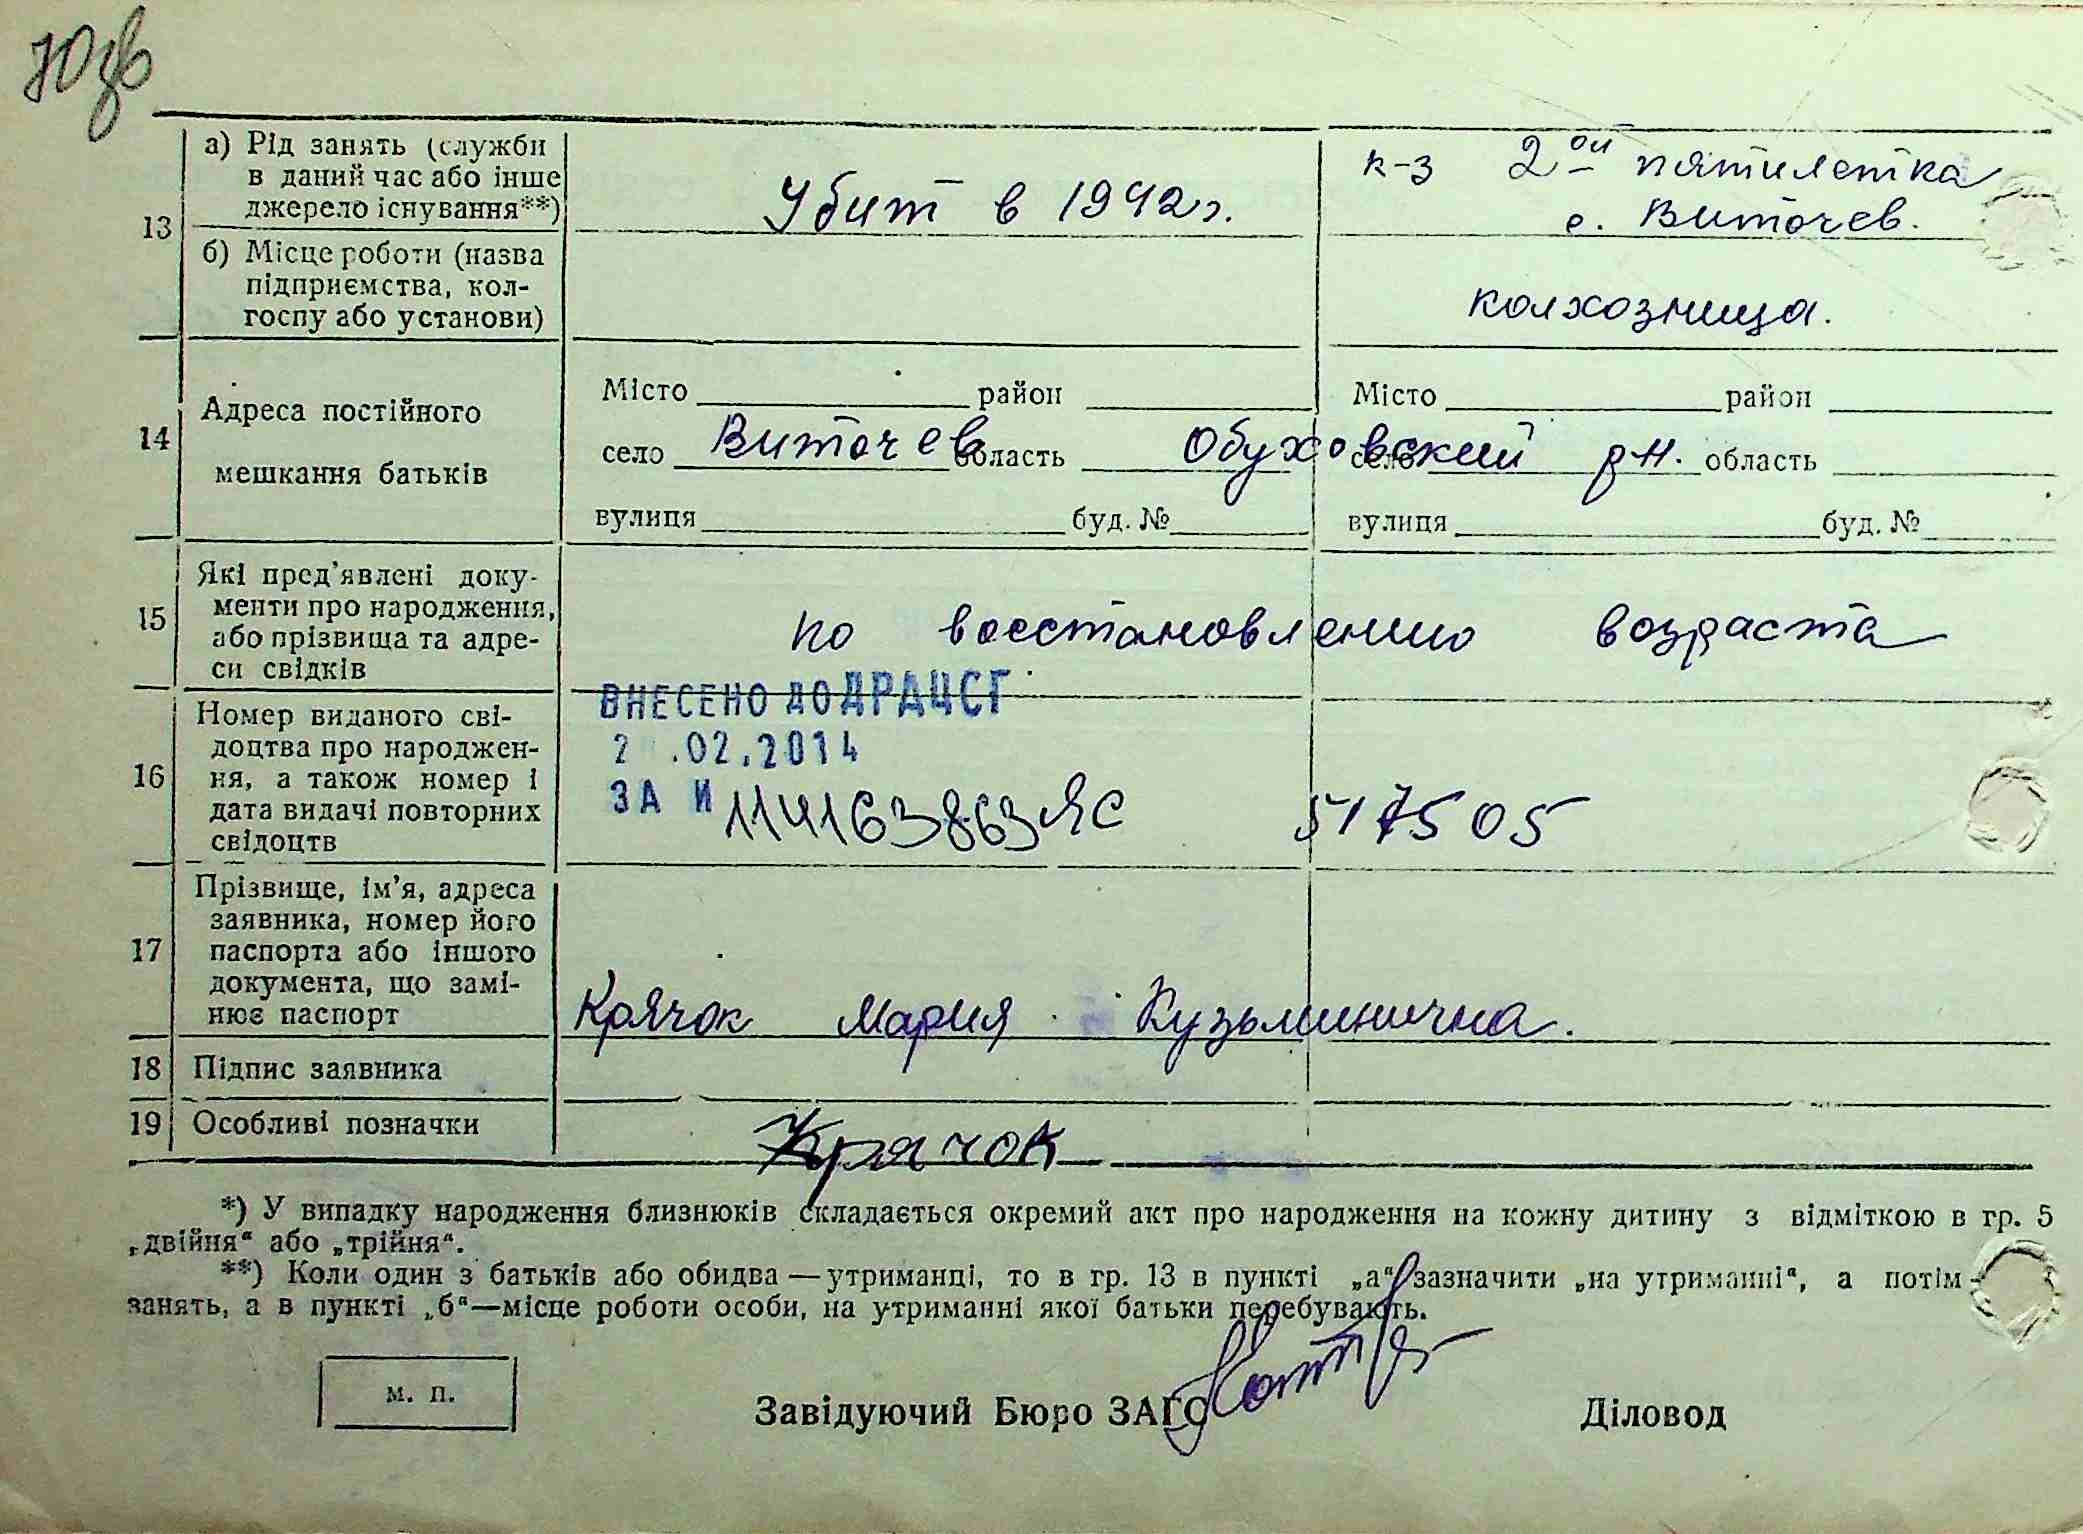 13 а) Рід занять (служби в даний час або інше джерело існування**)
Убит в 1942г.
к-з 2ой пятилетка
с. Виточев.
б) Місце роботи (назва підприємства, колгоспу або установи)
колхозница.
14 Адреса постійного мешкання батьків
Місто район Місто район
село Виточев область Обуховский село р-н. область
вулиця буд. № вулиця буд. №
15 Які пред'явлені документи про народження, або прізвища та адреси свідків
по восстановлению возраста
16 Номер виданого свідоцтва про народження, а також номер і дата видачі повторних свідоцтв
ВНЕСЕНО ДО ДРАЦСГ
2 .02.2014
ЗА И 114163863 ЯС 517505
17 Прізвище, ім'я, адреса заявника, номер його паспорта або іншого документа, що замінює паспорт
Крячок Мария Кузьминична.
18 Підпис заявника
19 Особливі позначки
Крячок
*) У випадку народження близнюків складається окремий акт про народження на кожну дитину з відміткою в гр. 5
„двійня" або „трійня".
**) Коли один з батьків або обидва — утриманці, то в гр. 13 в пункті „а" зазначити „на утриманні", а потім -
занять, а в пункті „б"—місце роботи особи, на утриманні якої батьки перебувають.
м. п.
Завідуючий Бюро ЗАГС
Діловод